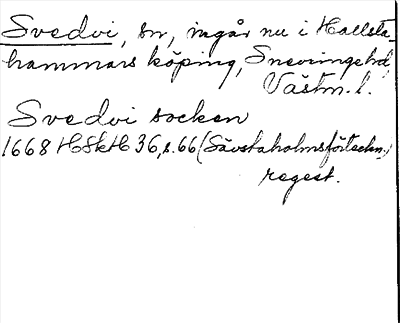 Svedvi, sn, ingår nu i Hallsta-
hammars köping, Snevringe hd
Västm. l.
Svedvi socken
1668 HSkH 36, s. 66 (Sävstaholmsförteckn.)
regest.